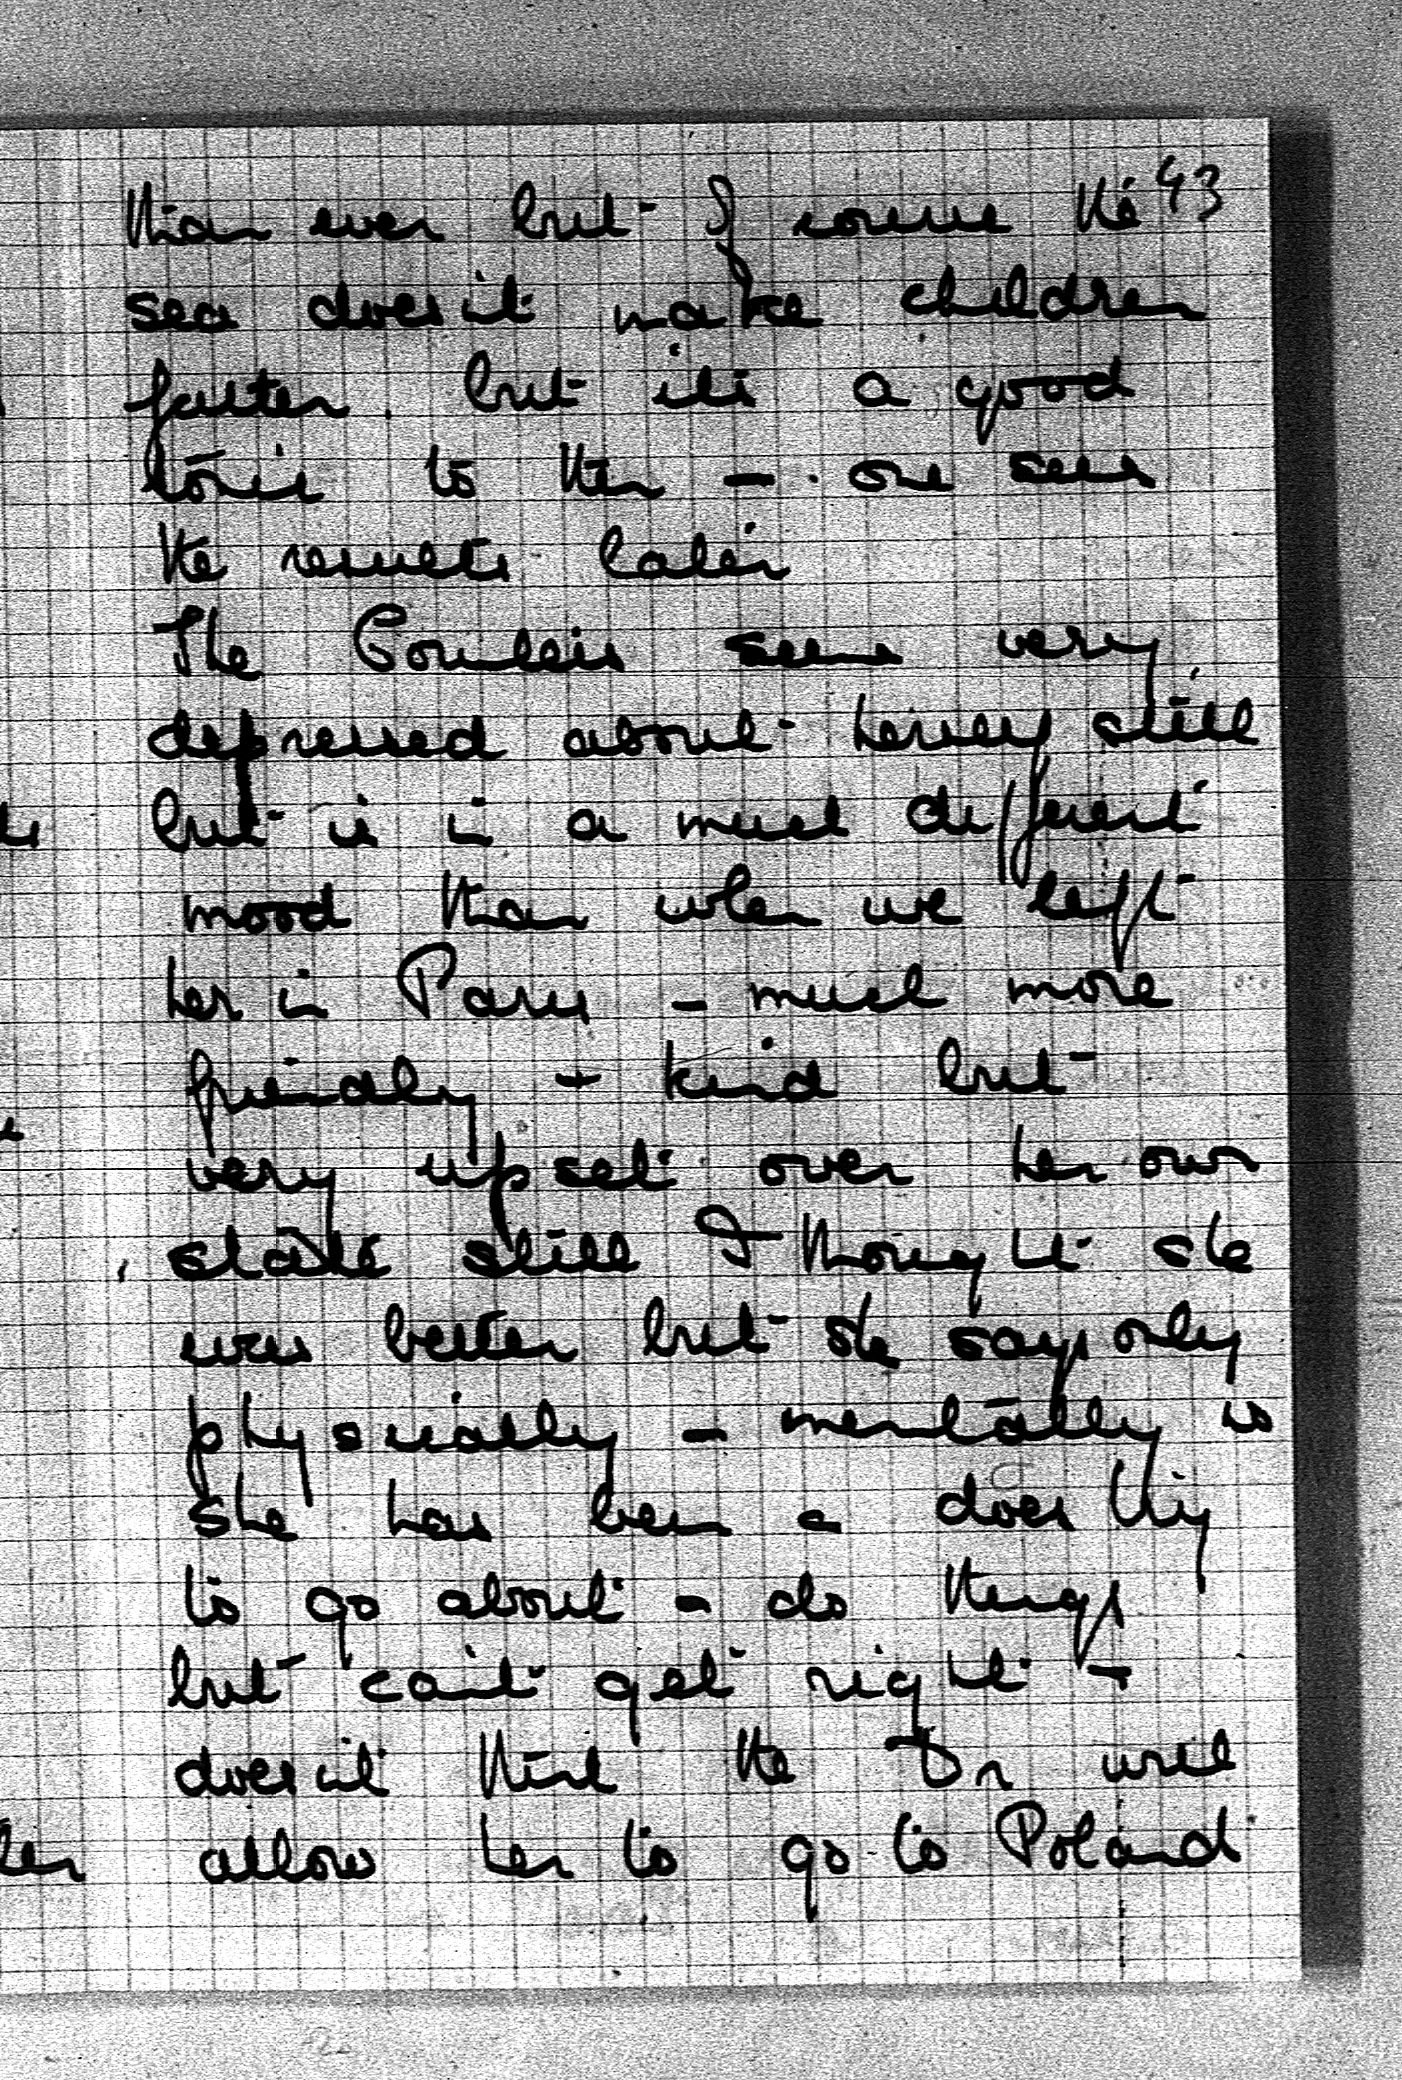 43
than ever but of course the
sea doesn't make children
fatter. but its a good
tonic to them - one sees
the results later
The Countess seems very
depressed about herself still
but is in a much different
mood than when we left
her in Paris - much more
friendly + kind but
very upset over her own
state still I thought she
was better but she says only
physically - mentally is
she has been a does try
to go about - do things
but can't get right +
doesn't think the Dr will
allow her to go to Poland